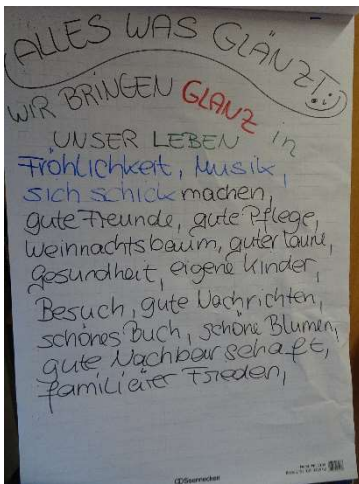 ALLES WAS GLÄNZT!
WIR BRINGEN GLANZ in
UNSER LEBEN
Fröhlichkeit, Musik,
sich schick machen,
gute Freunde, gute Pflege,
Weinnachtsbaum, guter Laune,
Gesundheit, eigene Kinder,
Besuch, gute Nachrichten,
schönes Buch, schöne Blumen,
gute Nachbarschaft,
familiärer Frieden,
Soennecken